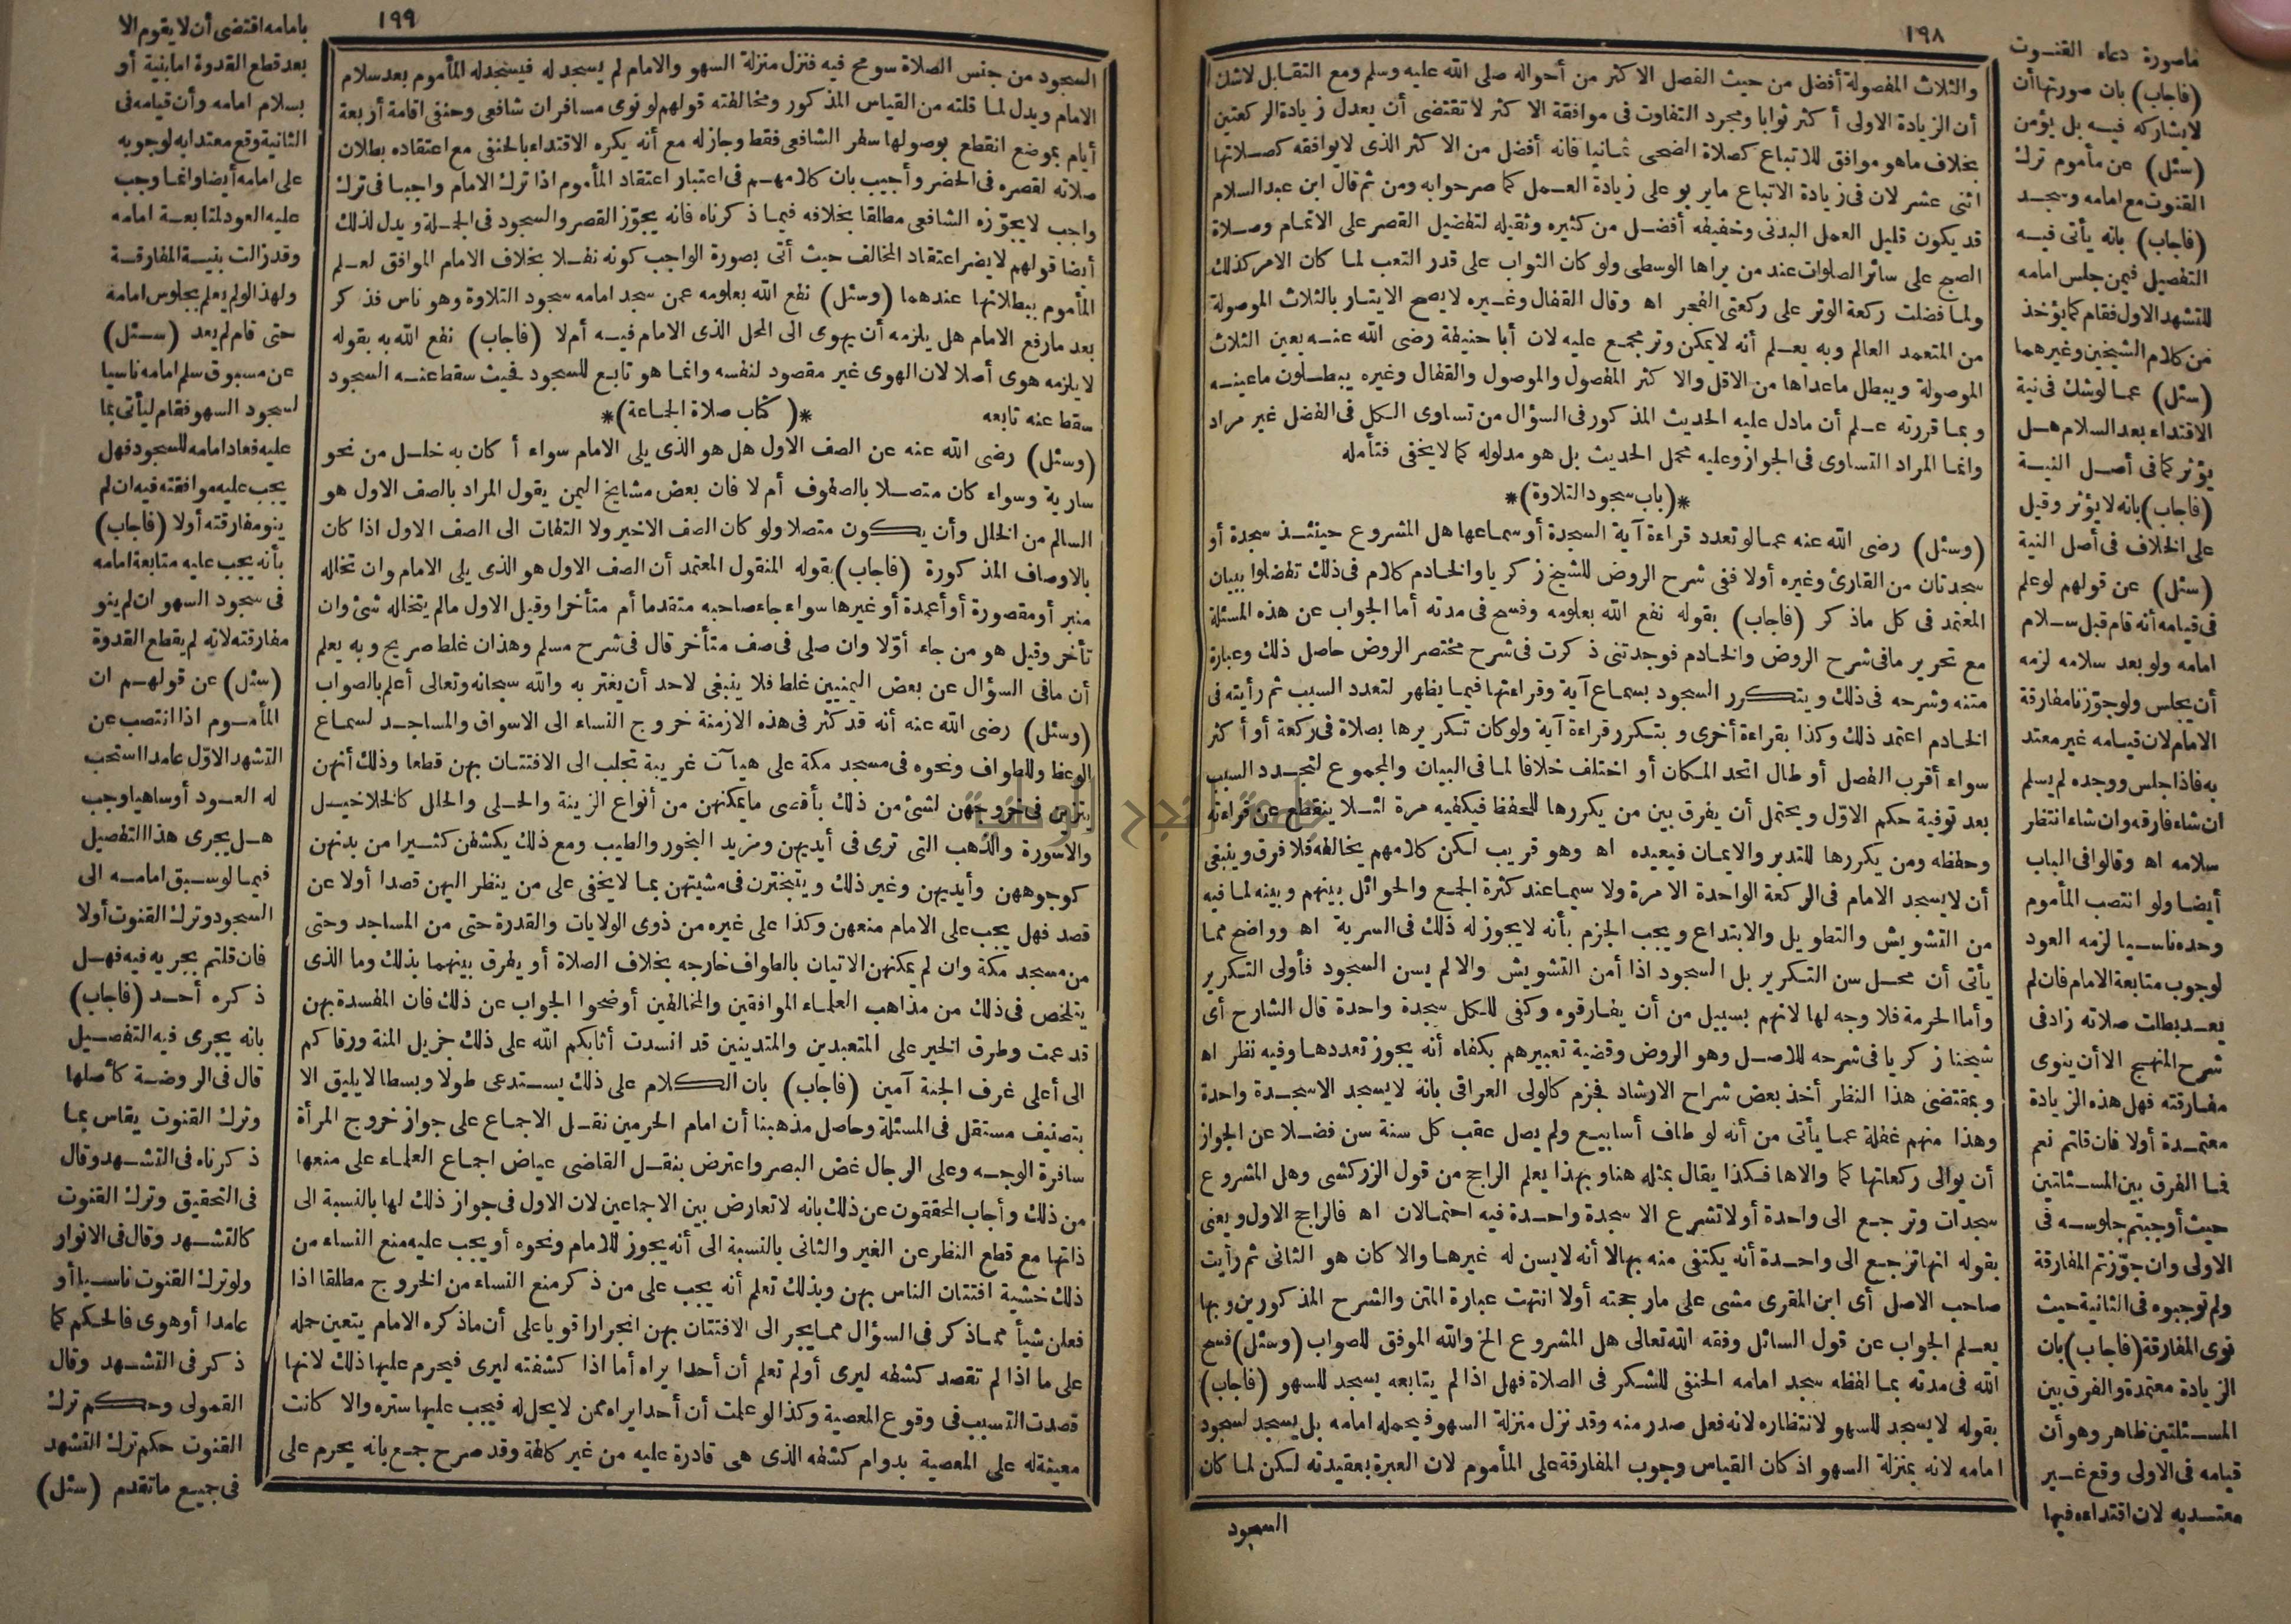 ١٩٨
والثلاث المفصولة أفضل من حيث الفصل الاكثر من أحواله صلى الله عليه وسلم ومع التقابل لاشك
أن الزيادة الاولى أكثر ثوابا ومجرد التفاوت فى موافقة الاكثر لاتقتضى أن يعدل زيادة الركعتين
بخلاف ماهو موافق للاتباع كصلاة الضحى ثمانيا فانه أفضل من الاكثر الذى لايوافقه كصلاتها
اثنى عشر لان فى زيادة الاتباع مايربو على زيادة العمل كما صرحوابه ومن ثم قال ابن عبد السلام
قد يكون قليل العمل البدنى وخفيفه أفضل من كثيره وثقيله لتفضيل القصر على الاتمام وصلاة
الصبح على سائر الصلوات عند من يراها الوسطى ولو كان الثواب على قدر التعب لما كان الامر كذلك
ولما فضلت ركعة الوتر على ركعتى الفجر اه وقال القفال وغيره لايصح الايتار بالثلاث الموصولة
من المتعمد العالم وبه يعلم أنه لايمكن وتر مجمع عليه لان أبا حنيفة رضى الله عنه يعين الثلاث
الموصولة ويبطل ماعداها من الاقل والاكثر المفصول والموصول والقفال وغيره يبطلون ماعينه
وبما قررته علم أن مادل عليه الحديث المذكور فى السؤال من تساوى الكل فى الفضل غير مراد
وانما المراد التساوى فى الجواز وعليه محمل الحديث بل هو مدلوله كما لايخفى فتأمله
*(باب سجود التلاوة)*
(وسئل) رضى الله عنه عمالو تعدد قراءة آية السجدة أو سماعها هل المشروع حينئذ سجدة أو
سجدتان من القارئ وغيره أولا ففى شرح الروض للشيخ زكريا والخادم كلام فى ذلك تفضلوا ببيان
المعتمد فى كل ماذكر (فاجاب) بقوله نفع الله بعلومه وفسح فى مدته أما الجواب عن هذه المسئلة
مع تحرير مافى شرح الروض والخادم فوجدتنى ذكرت فى شرح مختصر الروض حاصل ذلك وعبارة
متنه وشرحه فى ذلك ويتكرر السجود بسماع آية وقراءتها فيما يظهر لتعدد السبب ثم رأيته فى
الخادم اعتمد ذلك وكذا بقراءة أخرى و بتكرر قراءة آية ولو كان تكريرها بصلاة فى ركعة أو أكثر
سواء أقرب الفصل أو طال اتحد المكان أو اختلف خلافا لما فى البيان والمجموع لتجدد السبب
بعد توفية حكم الاول ويحتمل أن يفرق بين من يكررها للحفظ فيكفيه مرة لئلا ينقطع عن قراءته
وحفظه ومن يكررها للتدبر والايمان فيعيده اه وهو قريب لكن كلامهم يخالفه فلا فرق وينبغى
أن لايسجد الامام فى الركعة الواحدة الا مرة ولا سيما عند كثرة الجمع والحوائل بينهم وبينه لما فيه
من التشويش والتطويل والابتداع ويجب الجزم بأنه لايجوز له ذلك فى السرية اه وواضح مما
يأتى أن محل سن التكرير بل السجود اذا أمن التشويش والا لم يسن السجود فأولى التكرير
وأما الحرمة فلا وجه لها لانهم بسبيل من أن يفارقوه وكفى للكل سجدة واحدة قال الشارح أى
شيخنا زكريا فى شرحه للاصل وهو الروض وقضية تعبيرهم بكفاه أنه يجوز تعددها وفيه نظر اه
وبمقتضى هذا النظر أخذ بعض شراح الارشاد فجزم كالولى العراقى بانه لايسجد الاسجدة واحدة
وهذا منهم غفلة عما يأتى من أنه لو طاف أسابيع ولم يصل عقب كل سنة سن فضلا عن الجواز
أن يوالى ركعاتها كما والاها فكذا يقال بمثله هنا وبهذا يعلم الراجح من قول الزركشى وهل المشروع
سجدات وترجع الى واحدة أولا تشرع الا سجدة واحدة فيه احتمالات اه فالراجح الاول ويعنى
بقوله انها ترجع الى واحدة أنه يكتفى منه بها لا أنه لايسن له غيرها والا كان هو الثانى ثم رأيت
صاحب الاصل أى ابن المقرى مشى على مارجحته أولا انتهت عبارة المتن والشرح المذكورين وبها
يعلم الجواب عن قول السائل وفقه الله تعالى هل المشروع الخ والله الموفق للصواب (وسئل) فسح
الله فى مدته بما لفظه سجد امامه الحنفى للشكر فى الصلاة فهل اذا لم يتابعه يسجد للسهو (فاجاب)
بقوله لايسجد للسهو لانتظاره لانه فعل صدر منه وقد نزل منزلة السهو فيحمله امامه بل يسجد لسجود
امامه لانه بمنزلة السهو اذ كان القياس وجوب المفارقة على المأموم لان العبرة بعقيدته لكن لما كان
السجود
ماصورة دعاء القنوت
(فاجاب) بان صورتها أن
لايشاركه فيه بل يؤمن
(سئل) عن مأموم ترك
القنوت مع امامه وسجد
(فاجاب) بانه يأتى فيه
التفصيل فيمن جلس امامه
للتشهد الاول فقام كما يؤخذ
من كلام الشيخين وغيرهما
(سئل) عمالوشك فى نية
الاقتداء بعد السلام هل
يؤثر كما فى أصل النية
(فاجاب) بانه لايؤثر وقيل
على الخلاف فى أصل النية
(سئل) عن قولهم لو علم
فى قيامه أنه قام قبل سلام
امامه ولو بعد سلامه لزمه
أن يجلس ولو جوزنا مفارقة
الامام لان قيامه غير معتد
به فاذا جلس ووجده لم يسلم
ان شاء فارقه وان شاء انتظر
سلامه اه وقالوا فى الباب
أيضا ولو انتصب المأموم
وحده ناسيا لزمه العود
لوجوب متابعة الامام فان لم
يعد بطلت صلاته زاد فى
شرح المنهج الا أن ينوى
مفارقته فهل هذه الزيادة
معتمدة أولا فان قلتم نعم
فما الفرق بين المسئلتين
حيث أوجبتم جلوسه فى
الاولى وان جوزتم المفارقة
ولم توجبوه فى الثانية حيث
نوى المفارقة (فاجاب) بان
الزيادة معتمدة والفرق بين
المسئلتين ظاهر وهو أن
قيامه فى الاولى وقع غير
معتد به لان اقتداءه فيها
١٩٩
السجود من جنس الصلاة سومح فيه فتنزل منزلة السهو والامام لم يسجد له فيسجد له المأموم بعد سلام
الامام ويدل لما قلته من القياس المذكور ومخالفته قولهم لو نوى مسافران شافعى وحنفى اقامة أربعة
أيام بموضع انقطع بوصولها سفر الشافعى فقط وجاز له مع أنه يكره الاقتداء بالحنفى مع اعتقاده بطلان
صلاته لقصره فى الحضر وأجيب بان كلامهم فى اعتبار اعتقاد المأموم اذا ترك الامام واجبا فى ترك
واجب لايجوزه الشافعى مطلقا بخلافه فيما ذكرناه فانه يجوز القصر والسجود فى الجملة ويدل لذلك
أيضا قولهم لايضر اعتقاد المخالف حيث أتى بصورة الواجب كونه نفلا بخلاف الامام الموافق لعلم
المأموم ببطلانها عندهما (وسئل) نفع الله بعلومه عمن سجد امامه سجود التلاوة وهو ناس فذكر
بعد مارفع الامام هل يلزمه أن يهوى الى المحل الذى الامام فيه أم لا (فاجاب) نفع الله به بقوله
لايلزمه هوى أصلا لان الهوى غير مقصود لنفسه وانما هو تابع للسجود فحيث سقط عنه السجود
سقط عنه تابعه *(كتاب صلاة الجماعة)*
(وسئل) رضى الله عنه عن الصف الاول هل هو الذى يلى الامام سواء أكان به خلل من نحو
سارية وسواء كان متصلا بالصفوف أم لا فان بعض مشايخ اليمن يقول المراد بالصف الاول هو
السالم من الخلل وأن يكون متصلا ولو كان الصف الاخير ولا التفات الى الصف الاول اذا كان
بالاوصاف المذكورة (فاجاب) بقوله المنقول المعتمد أن الصف الاول هو الذى يلى الامام وان تخلله
منبر أو مقصورة أو أعمدة أو غيرها سواء جاء صاحبه متقدما أم متأخرا وقيل الاول مالم يتخلله شئ وان
تأخر وقيل هو من جاء أولا وان صلى فى صف متأخر قال فى شرح مسلم وهذان غلط صريح وبه يعلم
أن مافى السؤال عن بعض اليمنيين غلط فلا ينبغى لاحد أن يغتر به والله سبحانه وتعالى أعلم بالصواب
(وسئل) رضى الله عنه أنه قد كثر فى هذه الازمنة خروج النساء الى الاسواق والمساجد لسماع
الوعظ وللطواف ونحوه فى مسجد مكة على هيآت غريبة تجلب الى الافتتان بهن قطعا وذلك أنهن
يتزين فى خروجهن لشئ من ذلك بأقصى مايمكنهن من أنواع الزينة والحلى والحلل كالخلاخيل
والاسورة والذهب التى ترى فى أيديهن ومزيد البخور والطيب ومع ذلك يكشفن كثيرا من بدنهن
كوجوههن وأيديهن وغير ذلك ويتبخترن فى مشيتهن بما لايخفى على من ينظر اليهن قصدا أولا عن
قصد فهل يجب على الامام منعهن وكذا على غيره من ذوى الولايات والقدرة حتى من المساجد وحتى
من مسجد مكة وان لم يمكنهن الاتيان بالطواف خارجه بخلاف الصلاة أو يفرق بينهما بذلك وما الذى
يتلخص فى ذلك من مذاهب العلماء الموافقين والمخالفين أوضحوا الجواب عن ذلك فان المفسدة بهن
قد عمت وطرق الخير على المتعبدين والمتدينين قد انسدت أثابكم الله على ذلك جزيل المنة ورقاكم
الى أعلى غرف الجنة آمين (فاجاب) بان الكلام على ذلك يستدعى طولا وبسطا لايليق الا
بتصنيف مستقل فى المسئلة وحاصل مذهبنا أن امام الحرمين نقل الاجماع على جواز خروج المرأة
سافرة الوجه وعلى الرجال غض البصر واعترض بنقل القاضى عياض اجماع العلماء على منعها
من ذلك وأجاب المحققون عن ذلك بانه لاتعارض بين الاجماعين لان الاول فى جواز ذلك لها بالنسبة الى
ذاتها مع قطع النظر عن الغير والثانى بالنسبة الى أنه يجوز للامام ونحوه أو يجب عليه منع النساء من
ذلك خشية افتتان الناس بهن وبذلك تعلم أنه يجب على من ذكر منع النساء من الخروج مطلقا اذا
فعلن شيأ مما ذكر فى السؤال مما يجر الى الافتتان بهن انجرارا قويا على أن ماذكره الامام يتعين حمله
على ما اذا لم تقصد كشفه ليرى أو لم تعلم أن أحدا يراه أما اذا كشفته ليرى فيحرم عليها ذلك لانها
قصدت التسبب فى وقوع المعصية وكذا لو علمت أن أحدا يراه ممن لايحل له فيجب عليها ستره والا كانت
معينة له على المعصية بدوام كشفه الذى هى قادرة عليه من غير كلفة وقد صرح جمع بانه يحرم على
بامامه اقتضى أن لايقوم الا
بعد قطع القدوة اما بنية أو
بسلام امامه وأن قيامه فى
الثانية وقع معتدا به لوجوبه
على امامه أيضا وانما وجب
عليه العود لمتابعة امامه
وقد زالت بنية المفارقة
ولهذا لو لم يعلم بجلوس امامه
حتى قام لم يعد (سئل)
عن مسبوق سلم امامه ناسيا
لسجود السهو فقام ليأتى بما
عليه فعاد امامه للسجود فهل
يجب عليه موافقته فيه ان لم
ينو مفارقته أولا (فاجاب)
بأنه يجب عليه متابعة امامه
فى سجود السهو ان لم ينو
مفارقته لانه لم يقطع القدوة
(سئل) عن قولهم ان
المأموم اذا انتصب عن
التشهد الاول عامدا استحب
له العود أو ساهيا وجب
هل يجرى هذا التفصيل
فيما لو سبق امامه الى
السجود وترك القنوت أولا
فان قلتم يجريه فيه فهل
ذكره أحد (فاجاب)
بانه يجرى فيه التفصيل
قال فى الروضة كأصلها
وترك القنوت يقاس بما
ذكرناه فى التشهد وقال
فى التحقيق وترك القنوت
كالتشهد وقال فى الانوار
ولو ترك القنوت ناسيا أو
عامدا أو هوى فالحكم كما
ذكر فى التشهد وقال
القمولى وحكم ترك
القنوت حكم ترك التشهد
فى جميع ماتقدم (سئل)